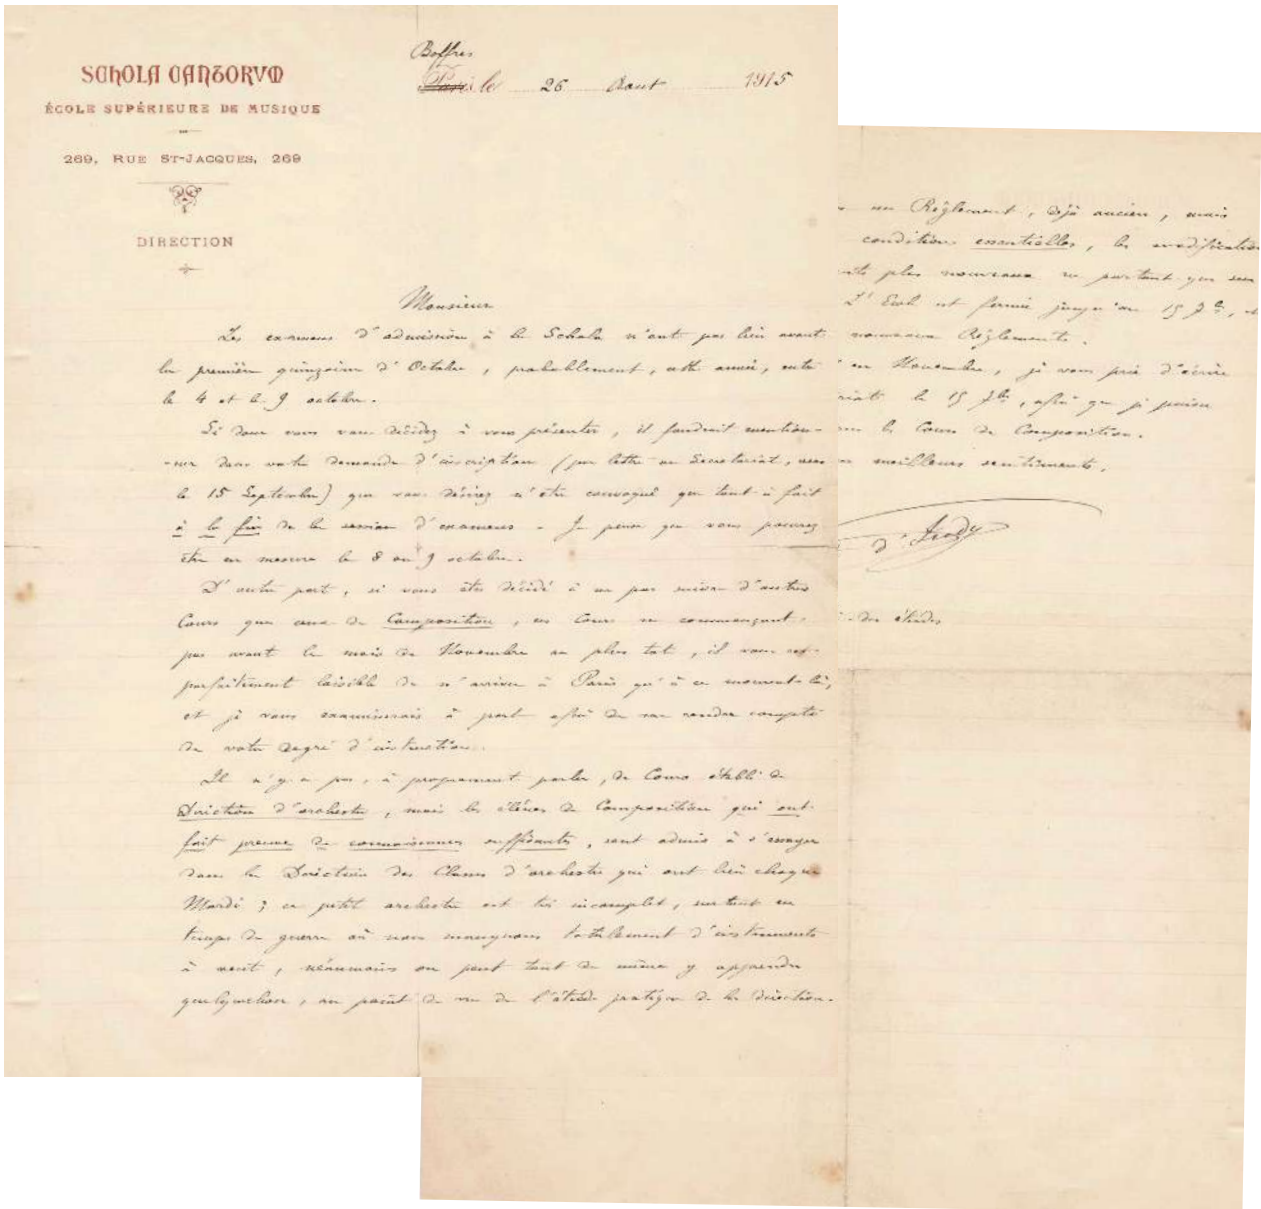 SCHOLA CANTORUM
ÉCOLE SUPÉRIEURE DE MUSIQUE
269, RUE ST-JACQUES, 269
DIRECTION
Boffres
Paris le 26 Aout 1915
Monsieur
Les examens d'admission à la Schola n'ont pas lieu avant
la première quinzaine d'Octobre, probablement, cette année, entre
le 4 et le 9 octobre.
Si donc vous vous décidez à vous présenter, il faudrait mention-
-ner dans votre demande d'inscription (par lettre au Secrétariat, vers
le 15 Septembre) que vous désirez n'être convoqué que tout à fait
à la fin de la session d'examens - Je pense que vous pourrez
être en mesure le 8 ou 9 octobre.
D'autre part, si vous êtes décidé à ne pas suivre d'autres
Cours que ceux de Composition, ces Cours ne commençant
pas avant le mois de Novembre au plus tot, il vous est
parfaitement loisible de n'arriver à Paris qu'à ce moment-là,
et je vous examinerais à part afin de me rendre compte
de votre degré d'instruction.
Il n'y a pas, à proprement parler, de Cours établi de
Direction d'orchestre, mais les élèves de Composition qui ont
fait preuve de connaissances suffisantes, sont admis à s'essayer
dans la Direction des Classes d'orchestre qui ont lieu chaque
Mardi ; ce petit orchestre est très incomplet, surtout en
temps de guerre où nous manquons totalement d'instruments
à vent, néanmoins on peut tout de même y apprendre
quelquechose, au point de vue de l'étude pratique de la direction.
un Règlement, déjà ancien, mais
conditions essentielles, les modifications
plus nouveaux ne portant que sur
L'Ecole est fermée jusqu'au 15 7bre,
nouveaux Règlements.
en Novembre, je vous prie d'écrire
le 15 7bre, afin que je puisse
le Cours de Composition.
meilleurs sentiments.
d'Indy
des études